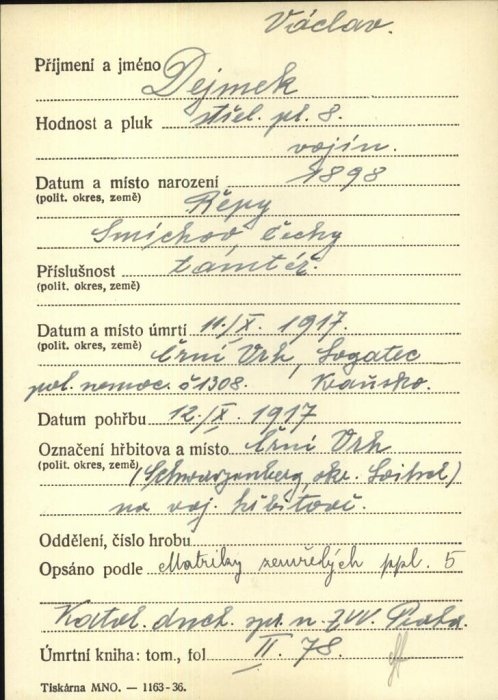 Václav.
Příjmení a jméno Dejmek
Hodnost a pluk střel. pl. 8.
vojín.
Datum a místo narození 1898
(polit. okres, země) Řepy
Smíchov, Čechy
Příslušnost tamtéž.
(polit. okres, země)
Datum a místo úmrtí 11./X. 1917.
(polit. okres, země) Črni Vrh, Logatec
pol. nemoc. č 1308. Kraňsko.
Datum pohřbu 12./X. 1917
Označení hřbitova a místo Črni Vrh
(polit. okres, země) (Schwarzenberg, okr.
na voj. hřbitově.
Oddělení, číslo hrobu
Opsáno podle Matriky zemřelých ppl. 5
Katol. duch. spr. n. ZVV. Praha.
Úmrtní kniha: tom., fol. II. 78.
Tiskárna MNO. — 1163-36.